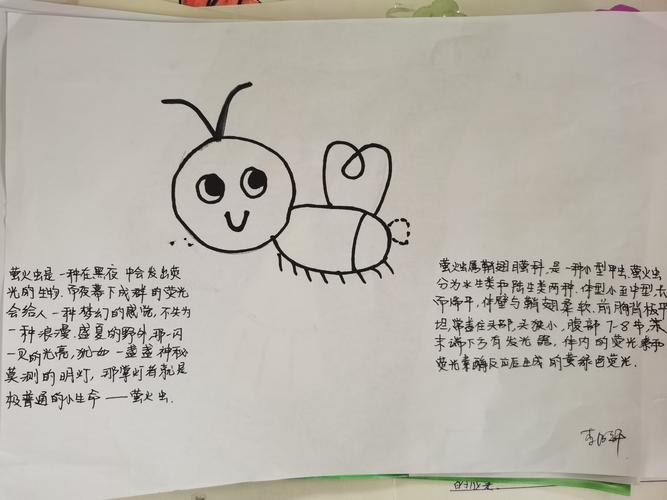 萤火虫是一种在黑夜中会发出荧
光的生物.而夜幕下成群的荧光
会给人一种梦幻的感觉,不失为
一种浪漫.盛夏的野外,那一闪
一灭的光亮,犹如一盏盏神秘
莫测的明灯,那掌灯者就是
极普通的小生命——萤火虫.
萤火虫属鞘翅目萤科,是一种小型甲虫,萤火虫
分为水生类和陆生类两种.体型小至中型,长
而扁平,体壁与鞘翅柔软.前胸背板平
坦,常盖住头部,头狭小,腹部7-8节,末
末端下方有发光器,体内的荧光素和
荧光素酶反应后生成的黄绿色荧光.